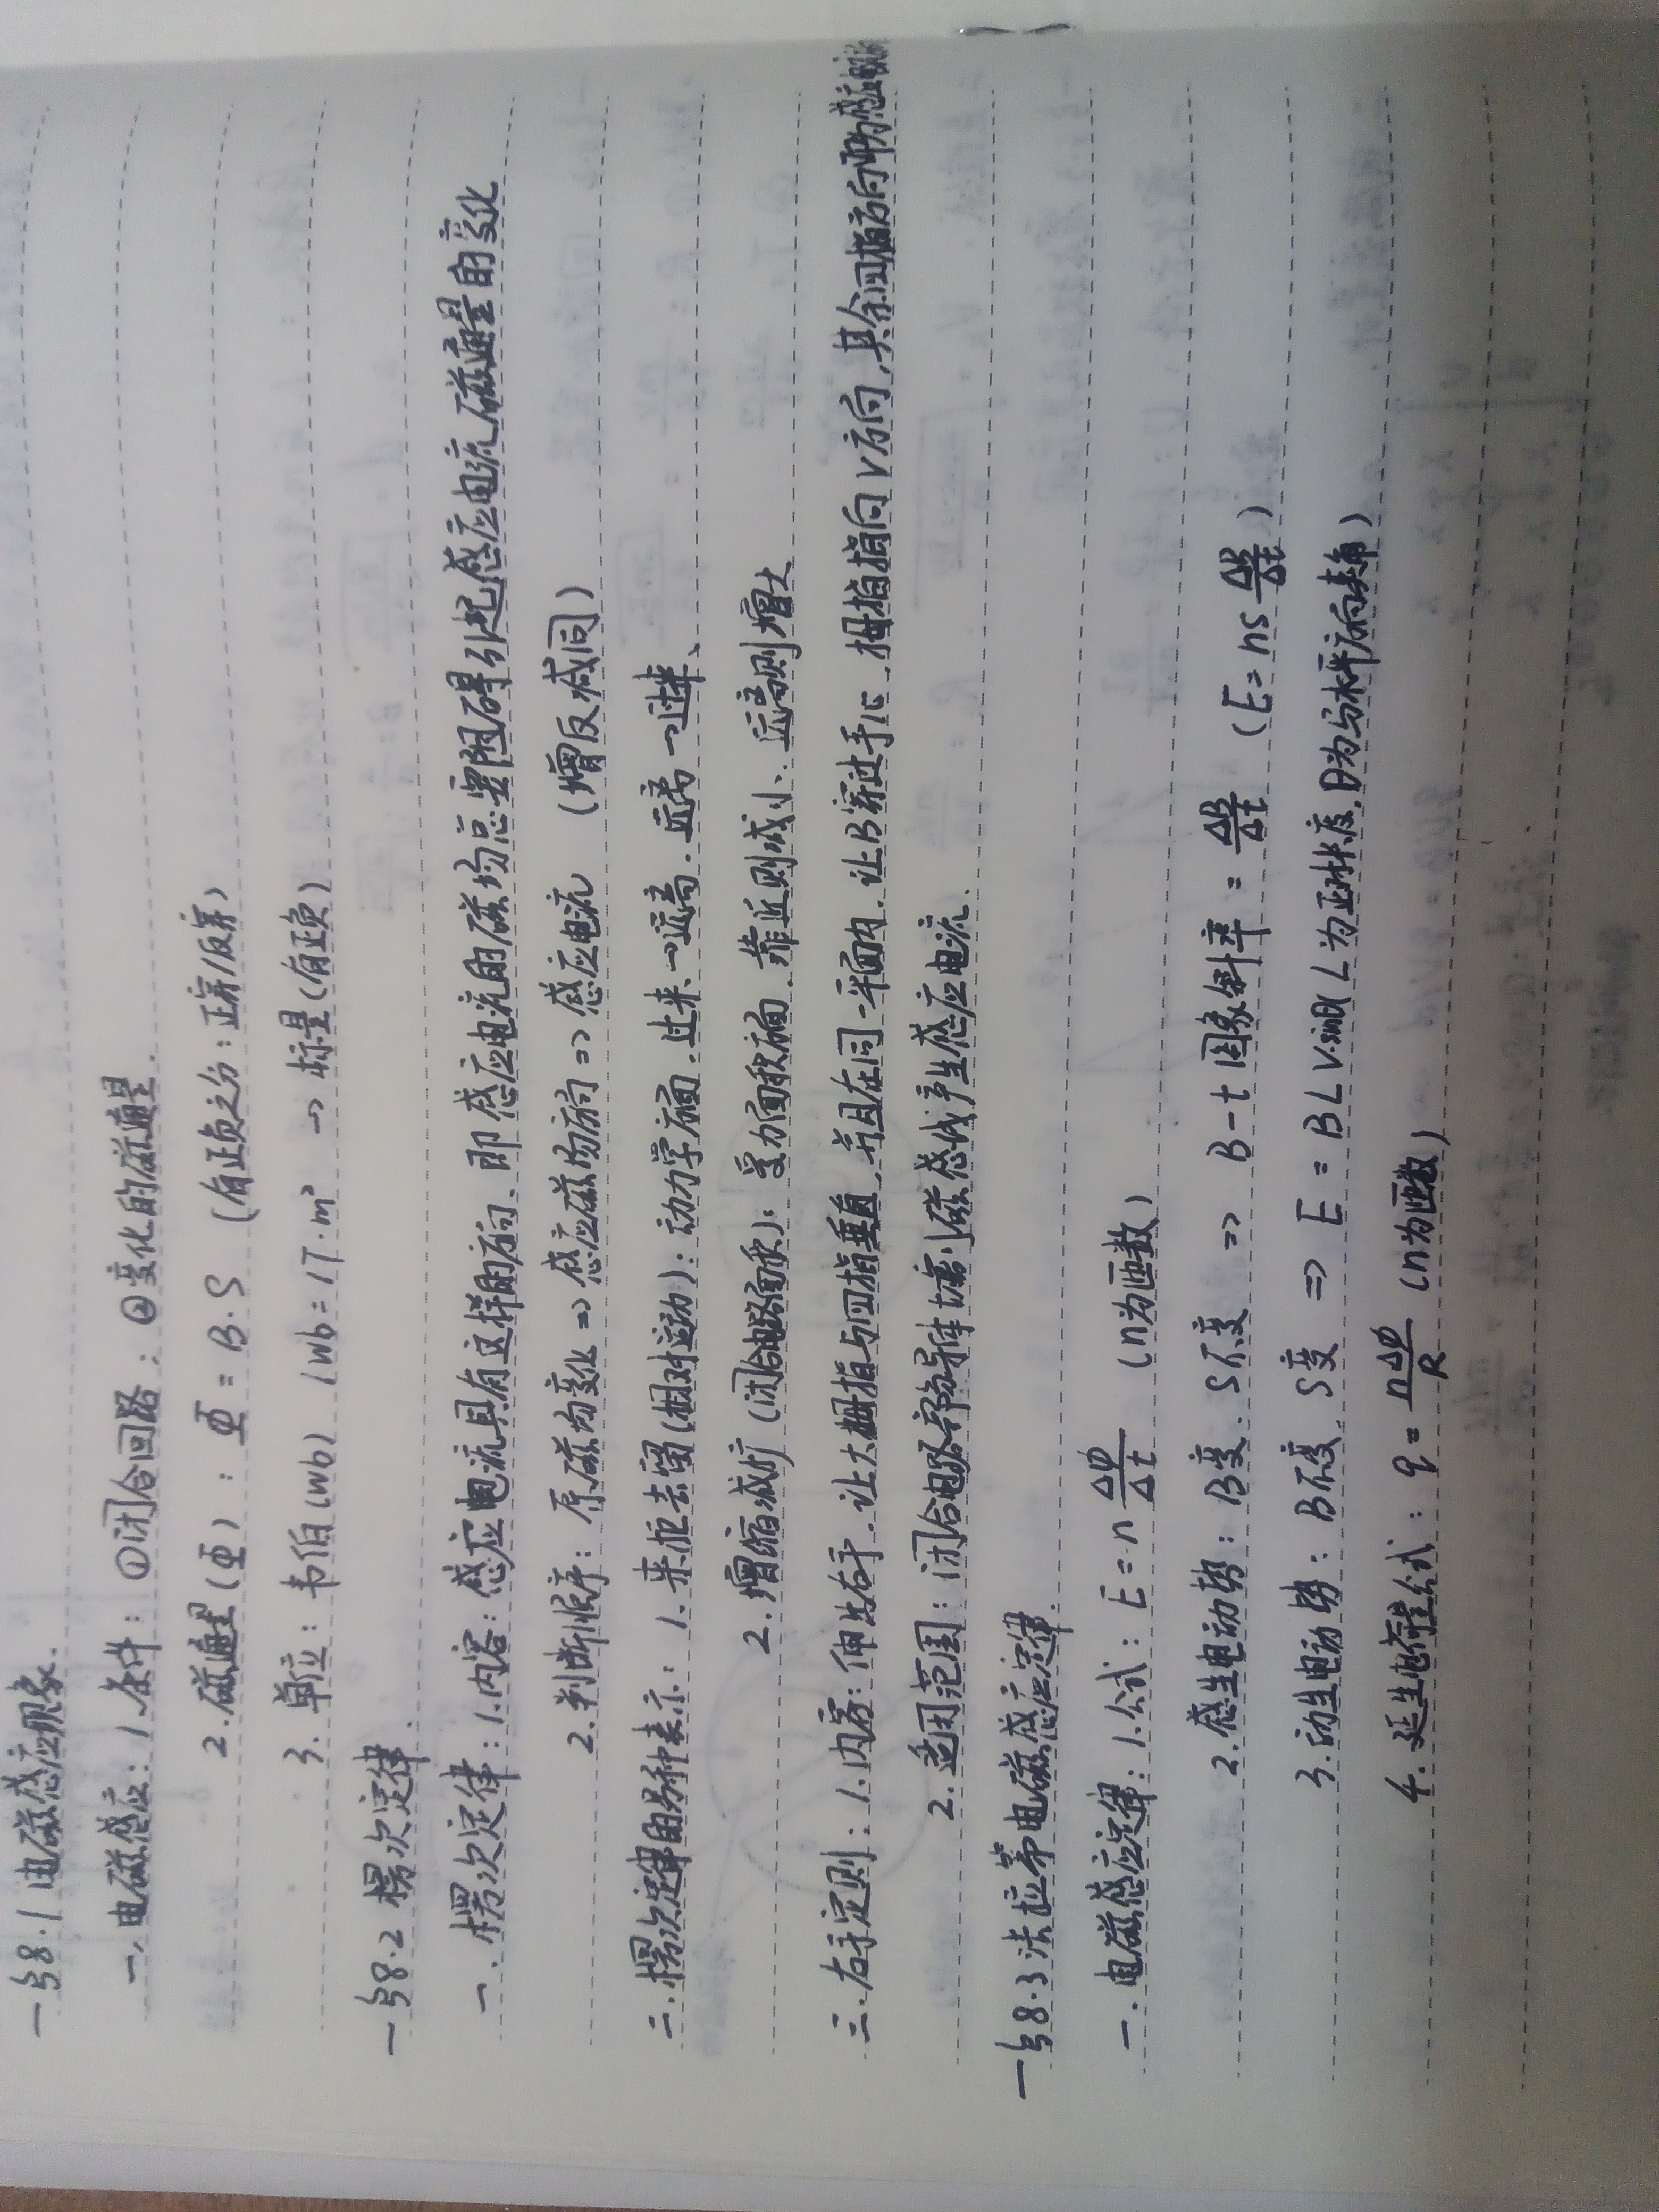 一§8.1 电磁感应现象.
一、电磁感应: 1.条件: ①闭合回路; ②变化的磁通量.
2.磁通量(Φ): Φ=B·S (有正负之分:正穿/反穿)
3.单位: 韦伯(wb) 1wb=1T·m² → 标量(有正负)
一§8.2 楞次定律.
一.楞次定律: 1.内容: 感应电流具有这样的方向,即感应电流的磁场总要阻碍引起感应电流磁通量的变化
2.判断顺序: 原磁场变化⇒感应磁场方向⇒感应电流 (增反减同)
二.楞次定律的另种表示: 1.来拒去留(相对运动): 动力学方面.过来→远离.远离→过来、
2.增缩减扩(闭合电路面积): 受力面积方面.靠近则减小.远离则增大
三.右手定则: 1.内容: 伸出右手.让大拇指与四指垂直.并且在同一平面内.让B穿过手心.拇指指向V方向.其余四指方向即为感应电流
2.适用范围: 闭合电路部分导体切割磁感线产生感应电流.
一§8.3 法拉第电磁感应定律.
一.电磁感应定律: 1.公式: E=n ΔΦ/Δt (n为匝数)
2.感生电动势: B变.S不变 ⇒ B-t图象斜率=ΔB/Δt (E=ns ΔB/Δt)
3.动生电动势: B不变.S变 ⇒ E=BLVsinθ(L为正对长度,θ为与水平方向夹角)
4.延生电荷量公式: q=nΔΦ/R (n为匝数)